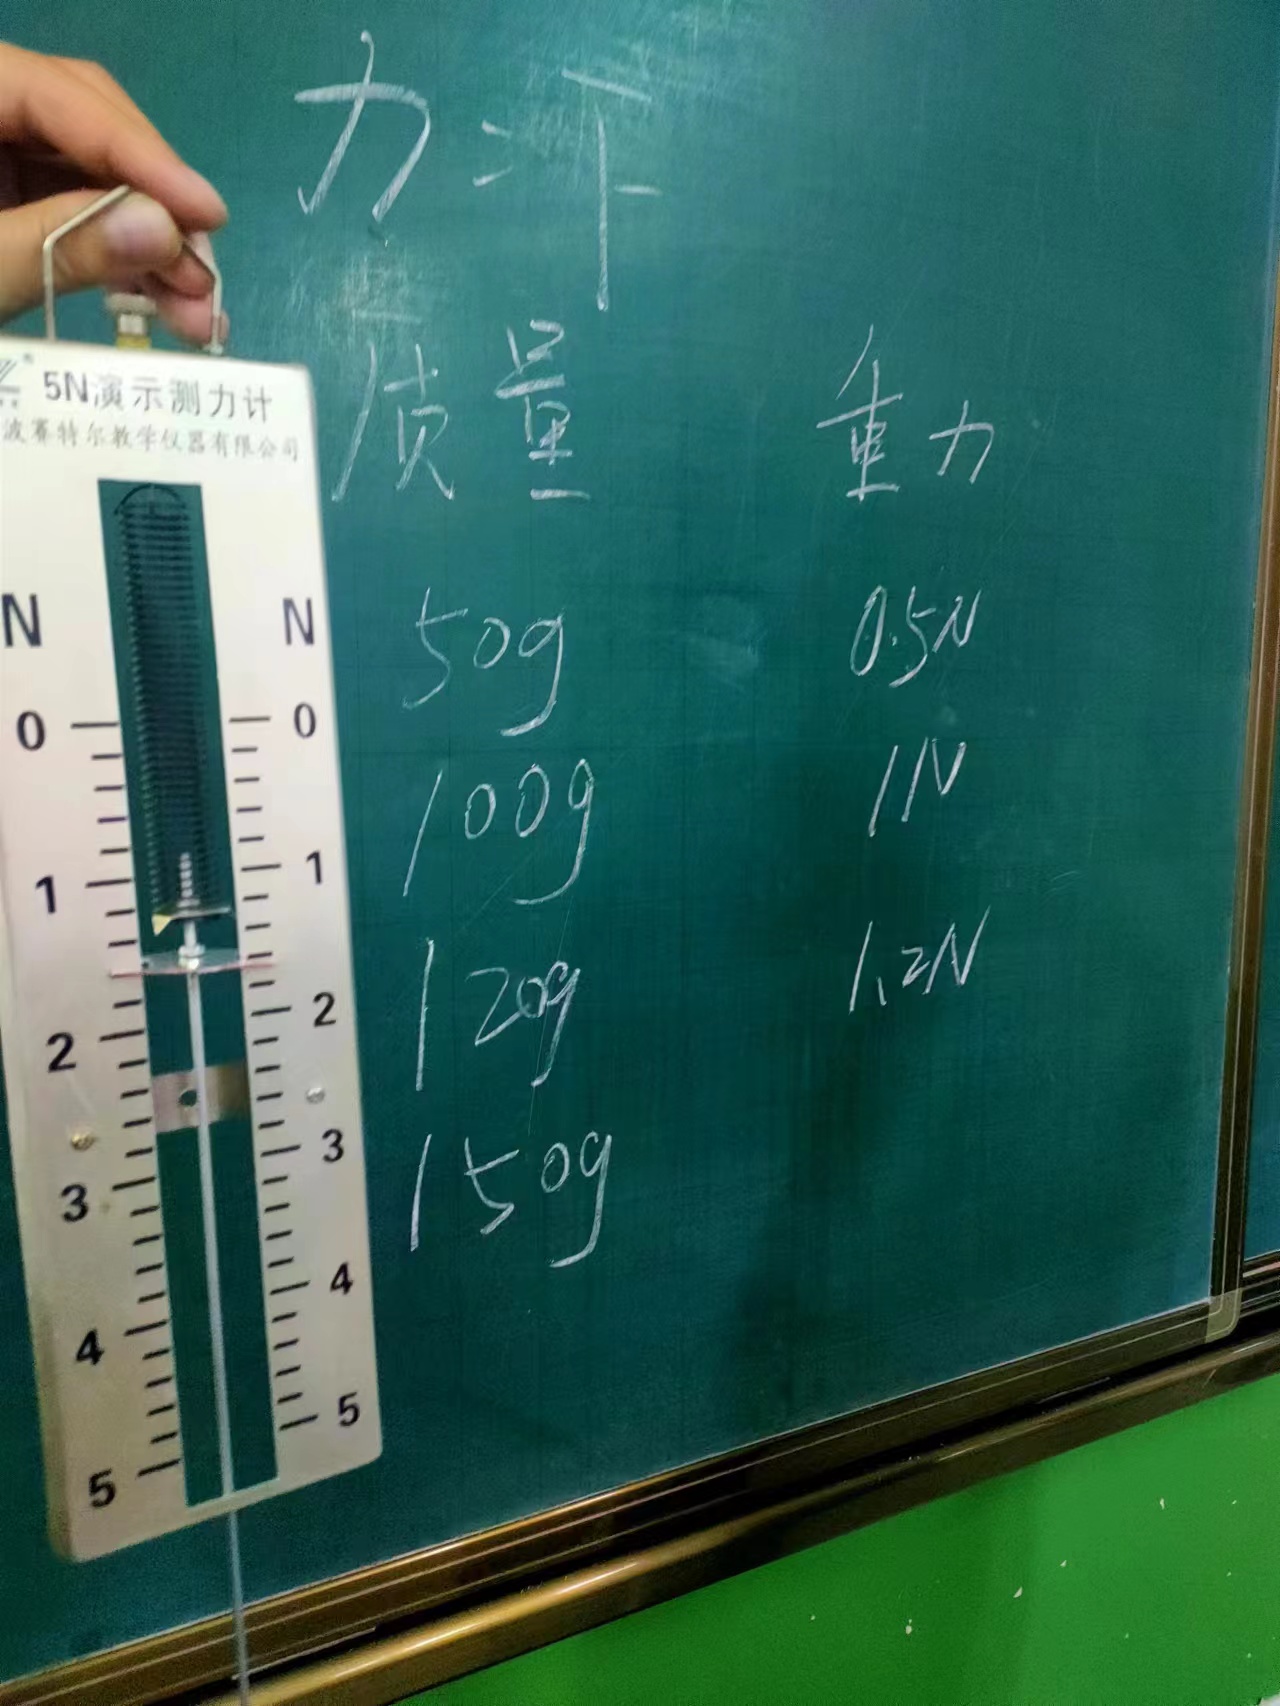 力
质量 重力
50g 0.5N
100g 1N
120g 1.2N
150g
5N演示测力计
波赛特尔教学仪器有限公司
N N
0 0
1 1
2 2
3 3
4 4
5 5